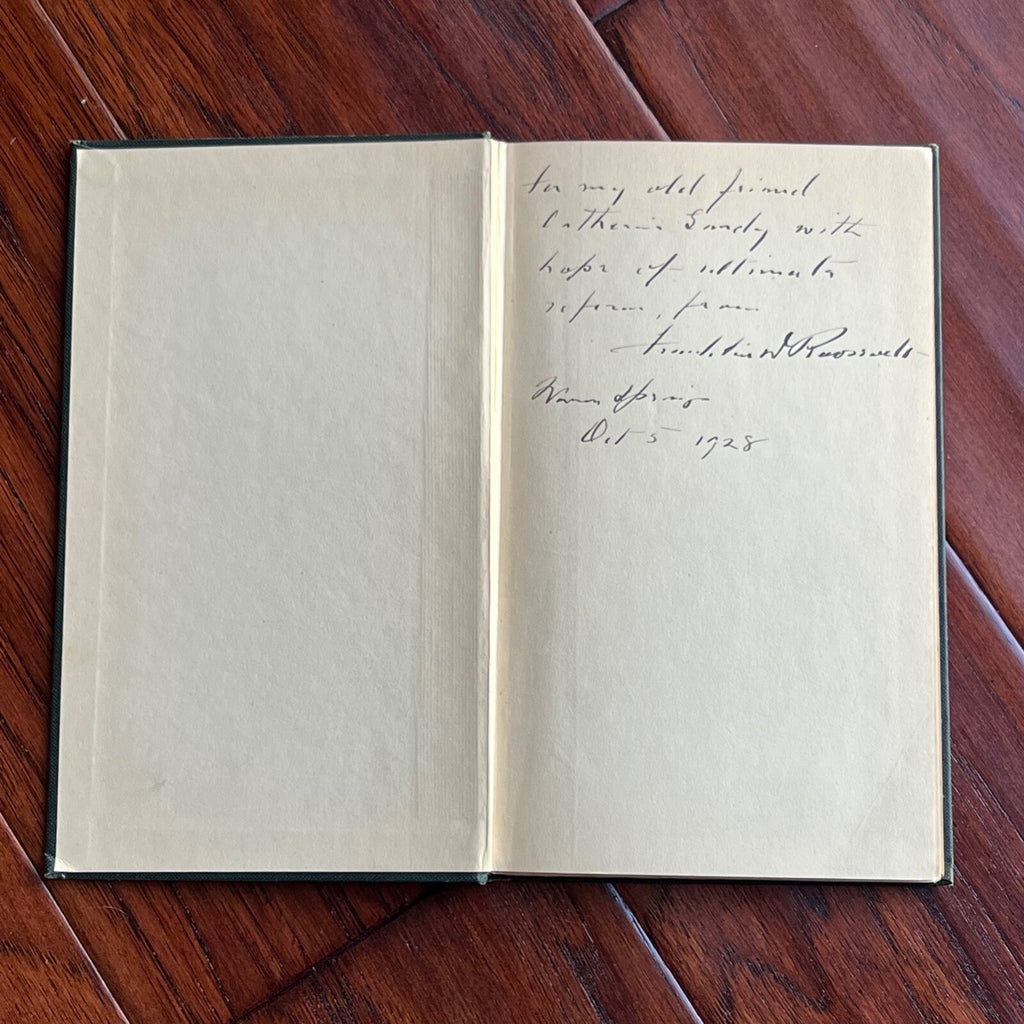 for my old friend
Catherine Gandy with
hope of ultimate
reform, from
Franklin D Roosevelt
Warm Springs
Oct 5 1928